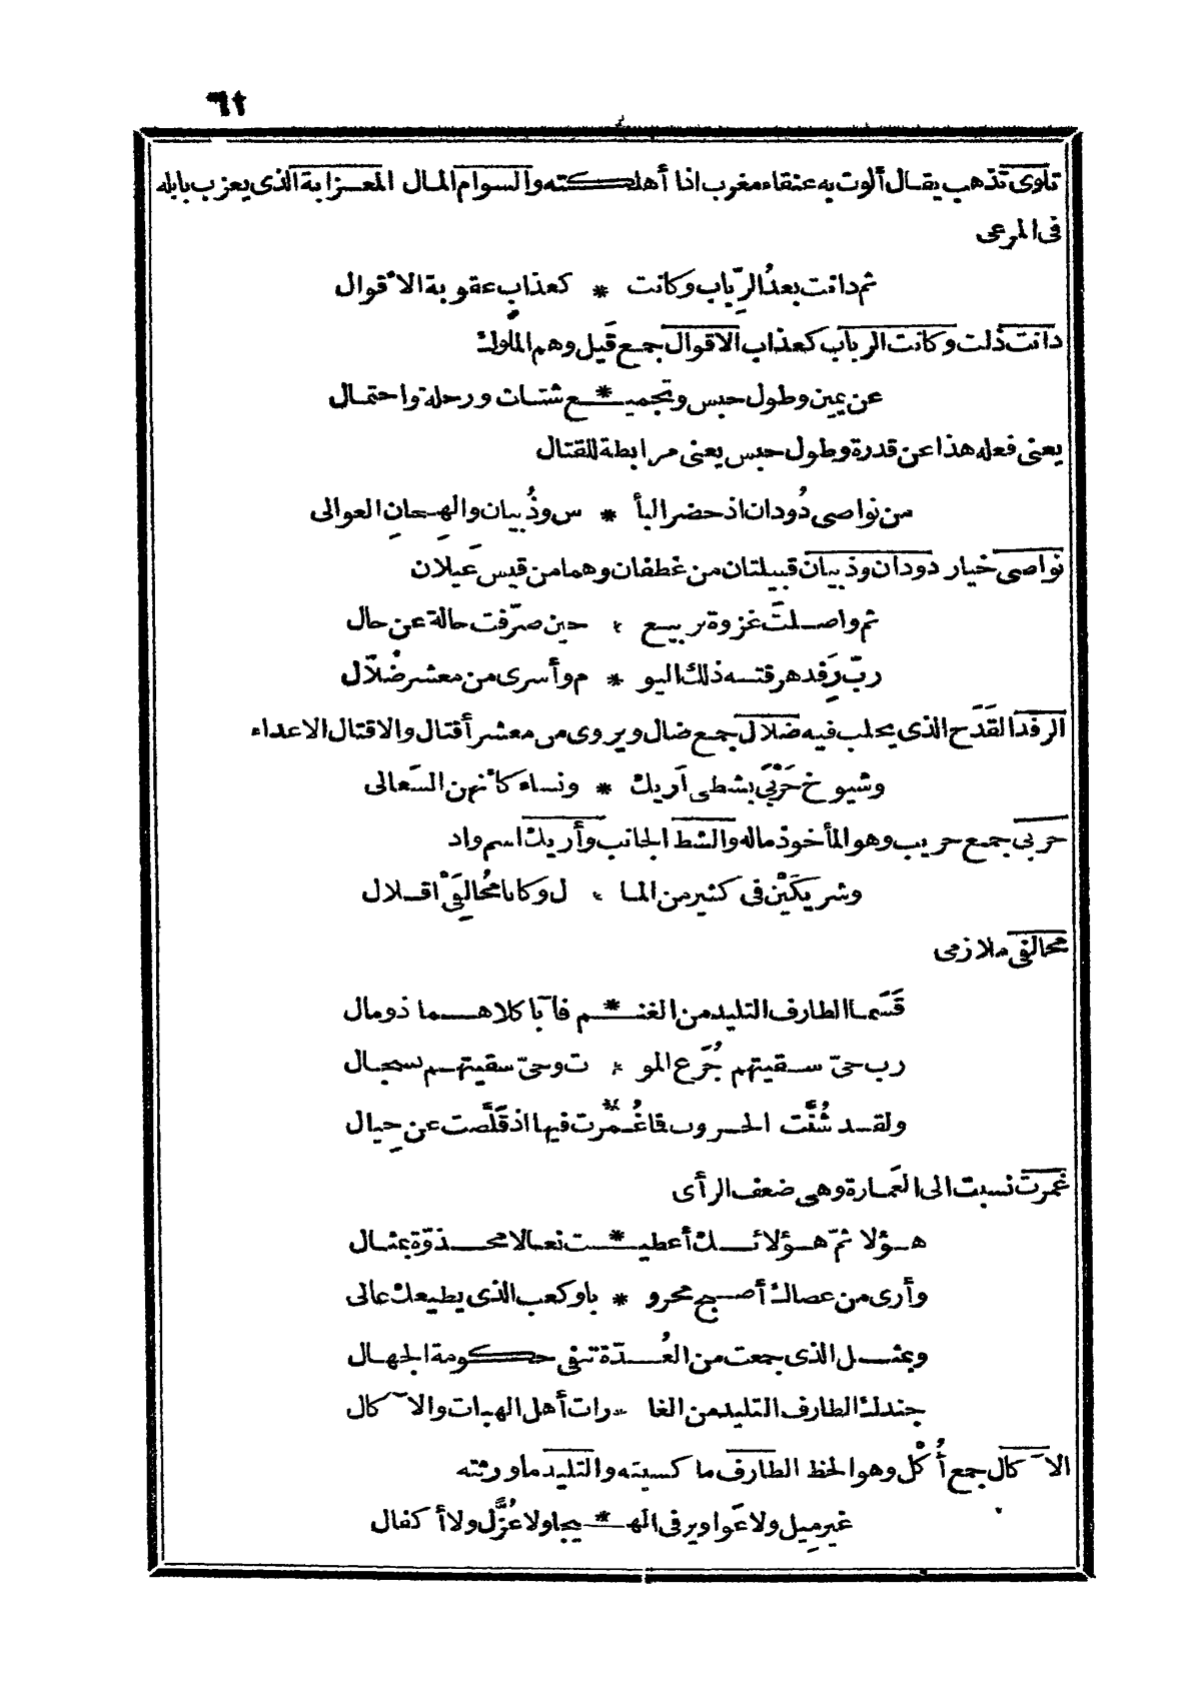 ٦٢
تلوى تذهب يقال ألوت به عنقاء مغرب اذا أهلكته والسوام المال المعزابة الذى يعزب بابله
فى المرعى
ثم دانت بعدُ الرِّباب وكانت * كعذابٍ عقوبة الاقوال
دانت ذلت وكانت الرباب كعذاب الاقوال جمع قَيل وهم الملوك
عن يمين وطول حبس وتجميـ * ـع شتات ورحلة واحتمال
يعنى فعله هذا عن قدرة وطول حبس يعنى مرابطة للقتال
من نواصى دُودان اذ حضر البأ * س وذُبيان والهِجانِ العوالى
نواصى خيار دودان وذبيان قبيلتان من غطفان وهما من قيس عَيلان
ثم واصلتَ غزوة بربيع * حين صرّفت حالة عن حال
ربّ رَِفد هرقته ذلك اليو * م وأسرى من معشر ضُلّال
الرفد القَدَح الذى يحلب فيه ضلال جمع ضال ويروى من معشر أقتال والاقتال الاعداء
وشيوخ حَرْبَى بشطى أَريك * ونساء كأنهن السَّعالى
حربى جمع حريب وهو المأخوذ ماله والشط الجانب وأريك اسم واد
وشريكَيْن فى كثير من الما * ل وكانا مُحالِفَىْ اقلال
محالفى ملازمى
قَسَما الطارف التليد من الغنـ * ـم فآبا كلاهما ذو مال
رب حىّ سقيتهم جُرَع المو * ت وحىّ سقيتهم بسجال
ولقد شُنَّت الحروب فما غُمِّـ * ـرت فيها اذ قلَّصت عن حِيال
غمرت نسبت الى الغَمارة وهى ضعف الرأى
هؤلا ثمّ هؤلائك أعطيـ * ـت نعالا محذوّة بمثال
وأرى من عصاك أصبح محرو * با وكعب الذى يطيعك عالى
وبمثل الذى جمعت من العُدّة تنفى حكومة الجهال
جندك الطارف التليد من الغا * رات أهل الهبات والآكال
الآكال جمع أُكْل وهو الحظ الطارف ما كسبته والتليد ماورثته
غير مِيل ولا عَواوير فى الهـ * ـيجا ولا عُزَّل ولا أكفال